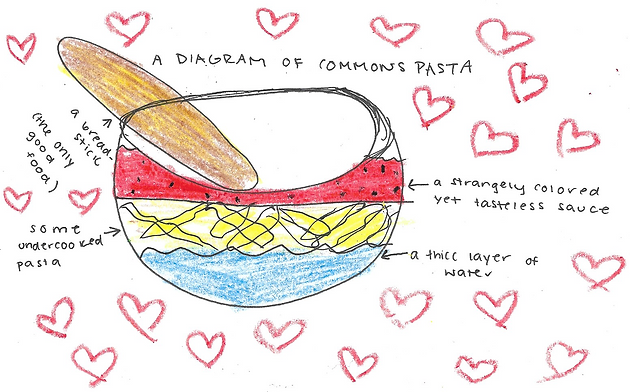 A DIAGRAM OF COMMONS PASTA
a bread-
stick
(the only
good
food)
a strangely colored
yet tasteless sauce
some
undercooked
pasta
a thicc layer of
water